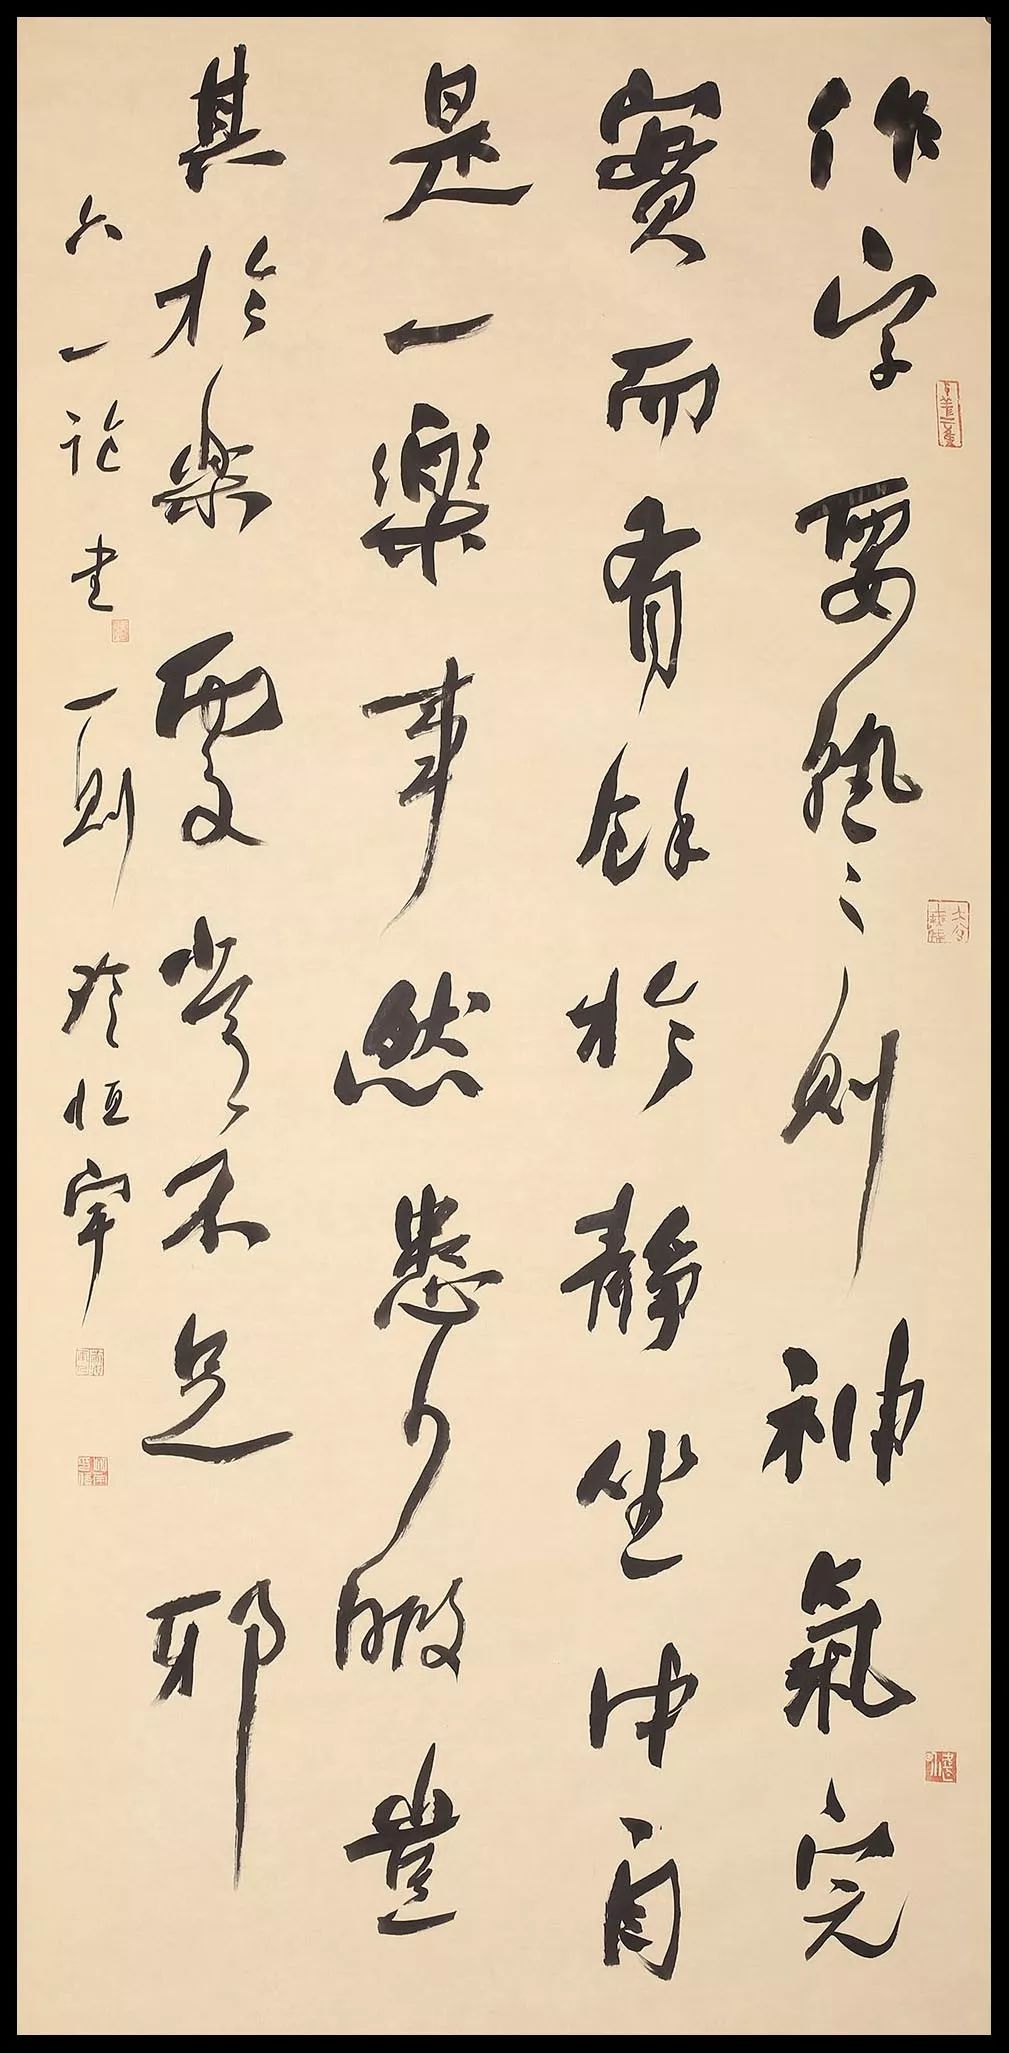 作字要熟〻則神氣完
實而有餘於靜坐中自
是一樂事然患少暇豈
其於樂處常不足邪
六一論書一則